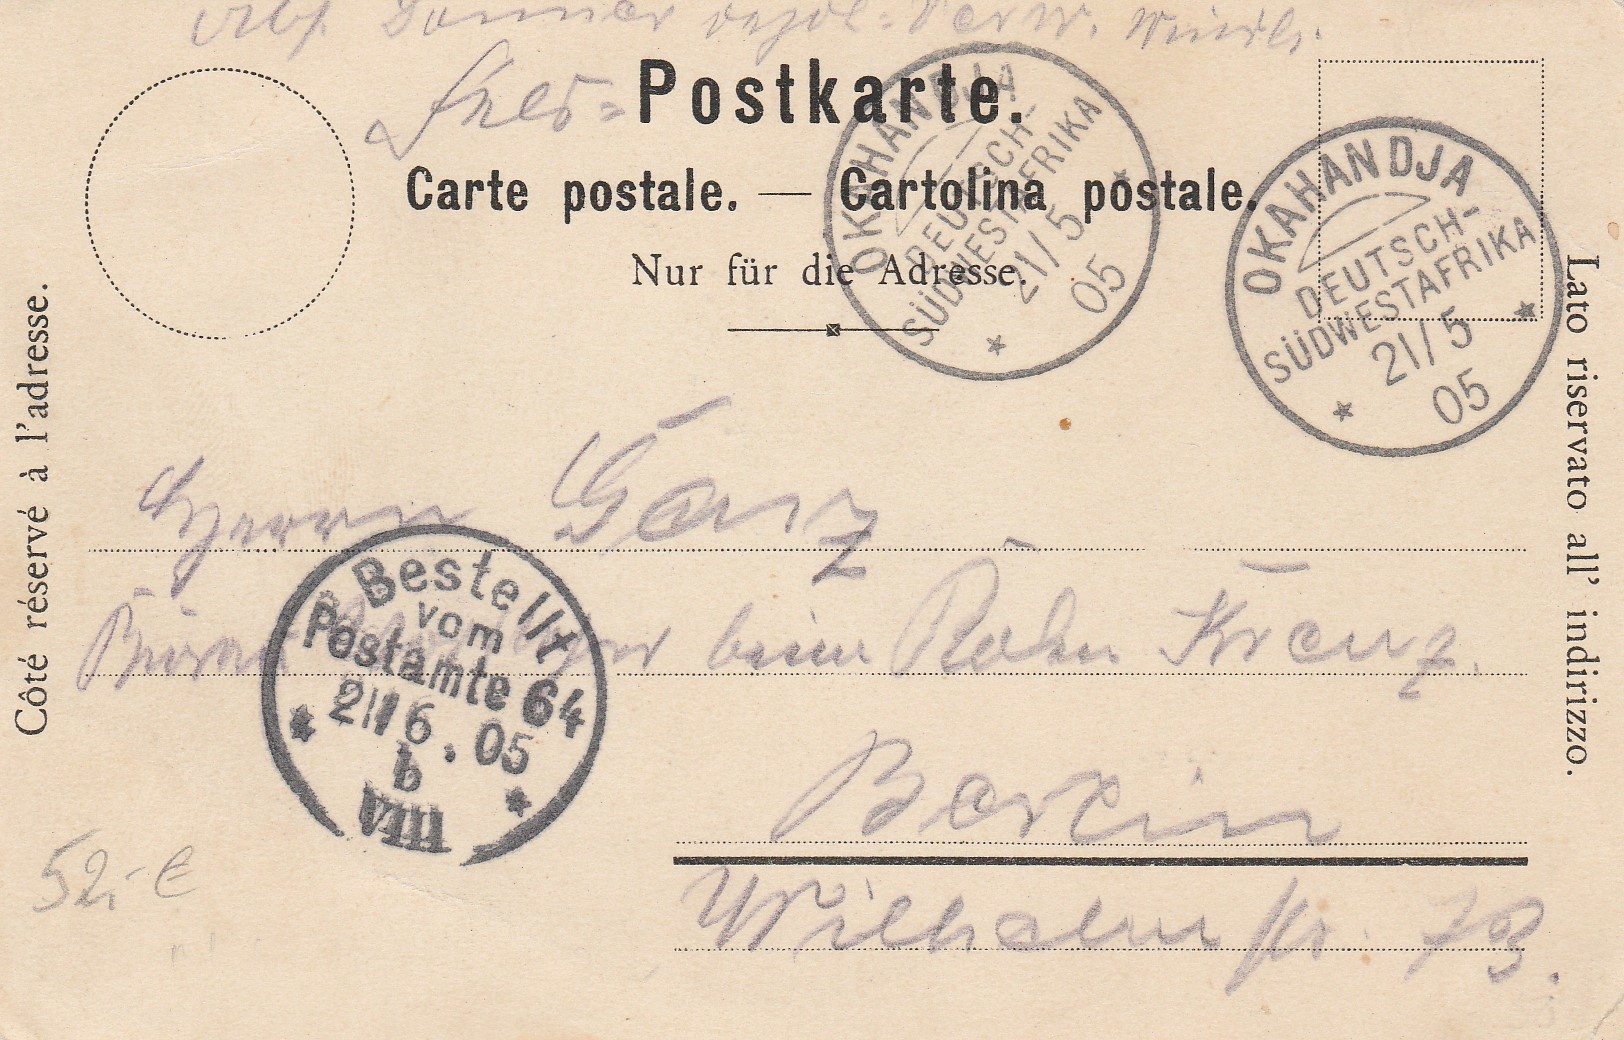 Feld=
Postkarte.
Carte postale. — Cartolina postale.
Nur für die Adresse.
OKAHANDJA
DEUTSCH-
SÜDWESTAFRIKA
21/5
05
OKAHANDJA
DEUTSCH-
SÜDWESTAFRIKA
21/5
05
Côté réservé à l'adresse.
Lato riservato all' indirizzo.
Herrn Garz
beim Roten Kreuz.
Bestellt
vom
Postamte 64
21/6.05
Berlin
Wilhelmstr. 73.
52,- €